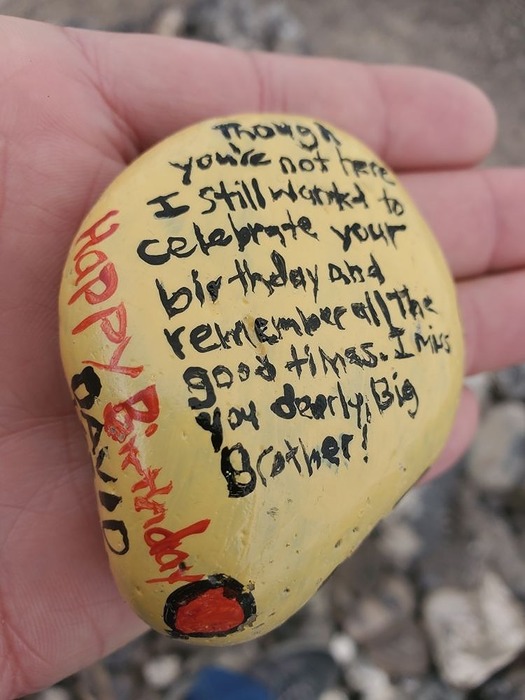 Though
you're not here
I still wanted to
celebrate your
birthday and
remember all The
good times. I miss
you dearly, Big
Brother!
Happy Birthday
DAVID